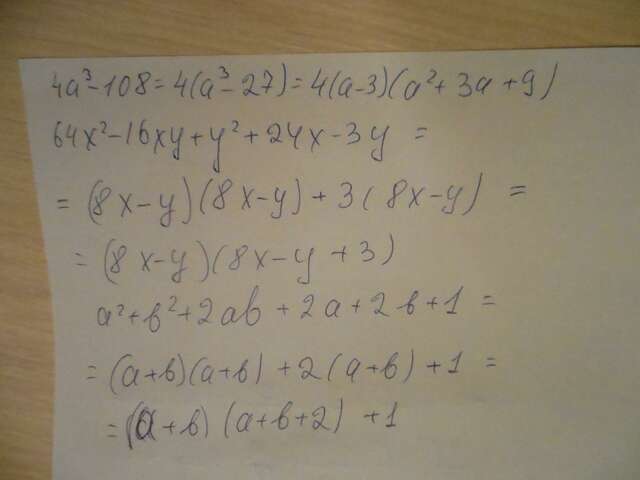 4a³-108=4(a³-27)=4(a-3)(a²+3a+9)
64x²-16xy+y²+24x-3y =
= (8x-y)(8x-y)+3(8x-y) =
= (8x-y)(8x-y+3)
a²+b²+2ab+2a+2b+1 =
= (a+b)(a+b)+2(a+b)+1 =
= (a+b)(a+b+2)+1